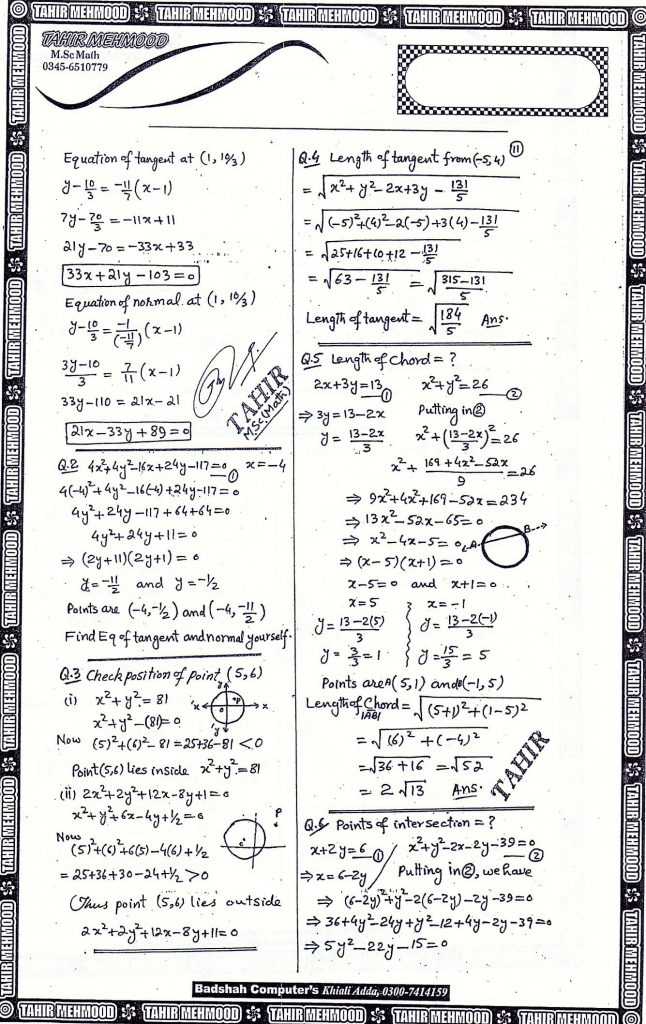 TAHIR MEHMOOD TAHIR MEHMOOD TAHIR MEHMOOD TAHIR MEHMOOD TAHIR MEHMOOD
TAHIR MEHMOOD
M.Sc Math
0345-6510779
Equation of tangent at (1, 10/3)
y - 10/3 = -11/7 (x-1)
7y - 70/3 = -11x + 11
21y - 70 = -33x + 33
33x + 21y - 103 = 0
Equation of normal at (1, 10/3)
y - 10/3 = -1/(-11/7) (x-1)
3y-10/3 = 7/11 (x-1)
33y - 110 = 21x - 21
21x - 33y + 89 = 0
TAHIR
M.Sc (Math)
Q.2 4x²+4y²-16x+24y-117=0 ① x=-4
4(-4)²+4y²-16(-4)+24y-117=0
4y²+24y-117+64+64=0
4y²+24y+11=0
⇒ (2y+11)(2y+1)=0
y=-11/2 and y=-1/2
Points are (-4,-1/2) and (-4,-11/2)
Find Eq of tangent and normal yourself.
Q.3 Check position of point (5,6)
(i) x²+y²=81
x²+y²-(81)=0
Now (5)²+(6)²-81=25+36-81<0
Point (5,6) lies inside x²+y²=81
(ii) 2x²+2y²+12x-8y+1=0
x²+y²+6x-4y+1/2=0
Now
(5)²+(6)²+6(5)-4(6)+1/2
=25+36+30-24+1/2>0
Thus point (5,6) lies outside
2x²+2y²+12x-8y+11=0
11
Q.4 Length of tangent from (-5,4)
= √(x²+y²-2x+3y-131/5)
= √((-5)²+(4)²-2(-5)+3(4)-131/5)
= √(25+16+10+12-131/5)
= √(63-131/5) = √(315-131/5)
Length of tangent = √(184/5) Ans.
Q.5 Length of Chord = ?
2x+3y=13 ① x²+y²=26 ②
⇒3y=13-2x Putting in ②
y=13-2x/3 x²+(13-2x/3)²=26
x²+169+4x²-52x/9=26
⇒ 9x²+4x²+169-52x=234
⇒13x²-52x-65=0
⇒ x²-4x-5=0 A B
⇒ (x-5)(x+1)=0
x-5=0 and x+1=0
x=5 x=-1
y=13-2(5)/3 y=13-2(-1)/3
y=3/3=1 y=15/3=5
Points are A(5,1) and B(-1,5)
Length of Chord = |AB| √((5+1)²+(1-5)²)
= √((6)²+(-4)²)
= √(36+16) = √52
= 2√13 Ans.
TAHIR
Q.6 Points of intersection = ?
x+2y=6 ① x²+y²-2x-2y-39=0 ②
⇒x=6-2y Putting in ②, we have
⇒ (6-2y)²+y²-2(6-2y)-2y-39=0
⇒36+4y²-24y+y²-12+4y-2y-39=0
⇒5y²-22y-15=0
Badshah Computer's Khiali Adda, 0300-7414159
TAHIR MEHMOOD TAHIR MEHMOOD TAHIR MEHMOOD TAHIR MEHMOOD TAHIR MEHMOOD